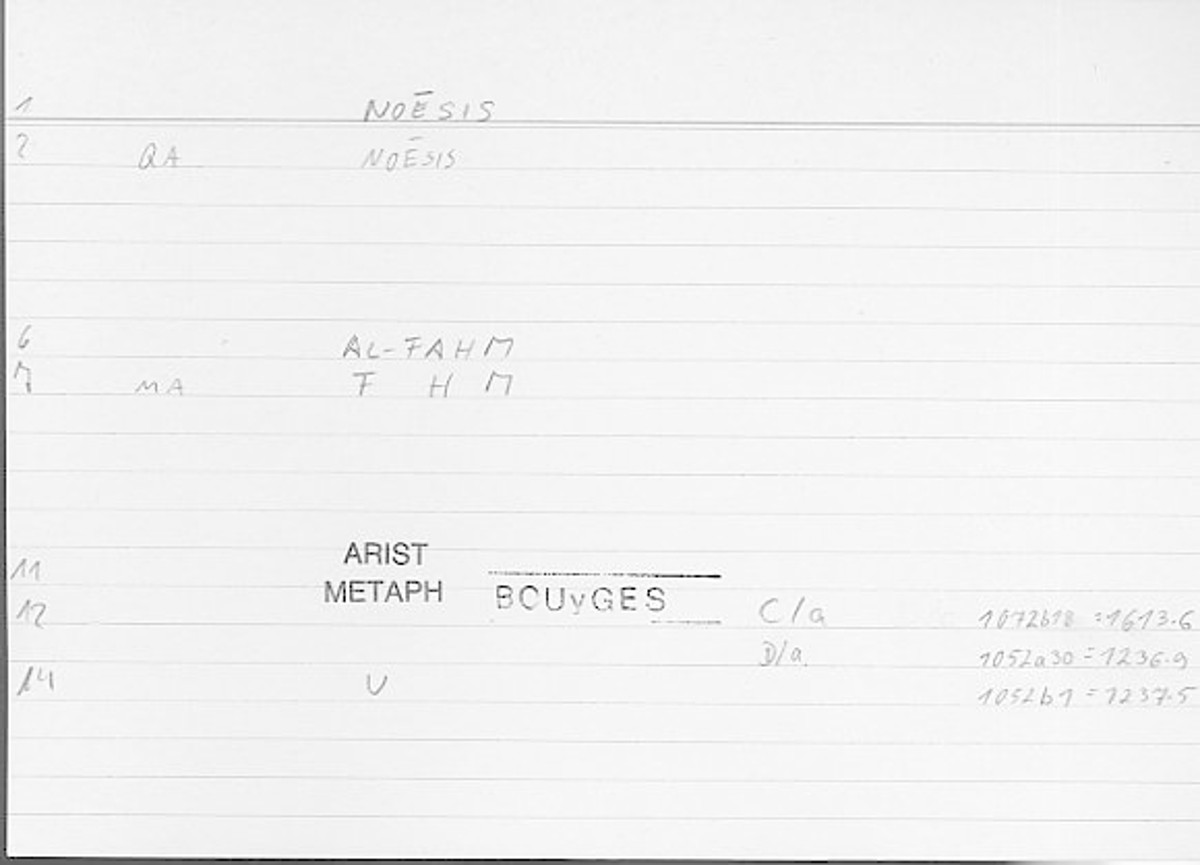 1 NOĒSIS
2 QA NOĒSIS
6 AL-FAHM
7 MA F H M
ARIST
11 METAPH BOUyGES
12 C/a 1072b18 = 1613.6
D/a 1052a30 = 1236.9
14 U 1052b1 = 1237.5